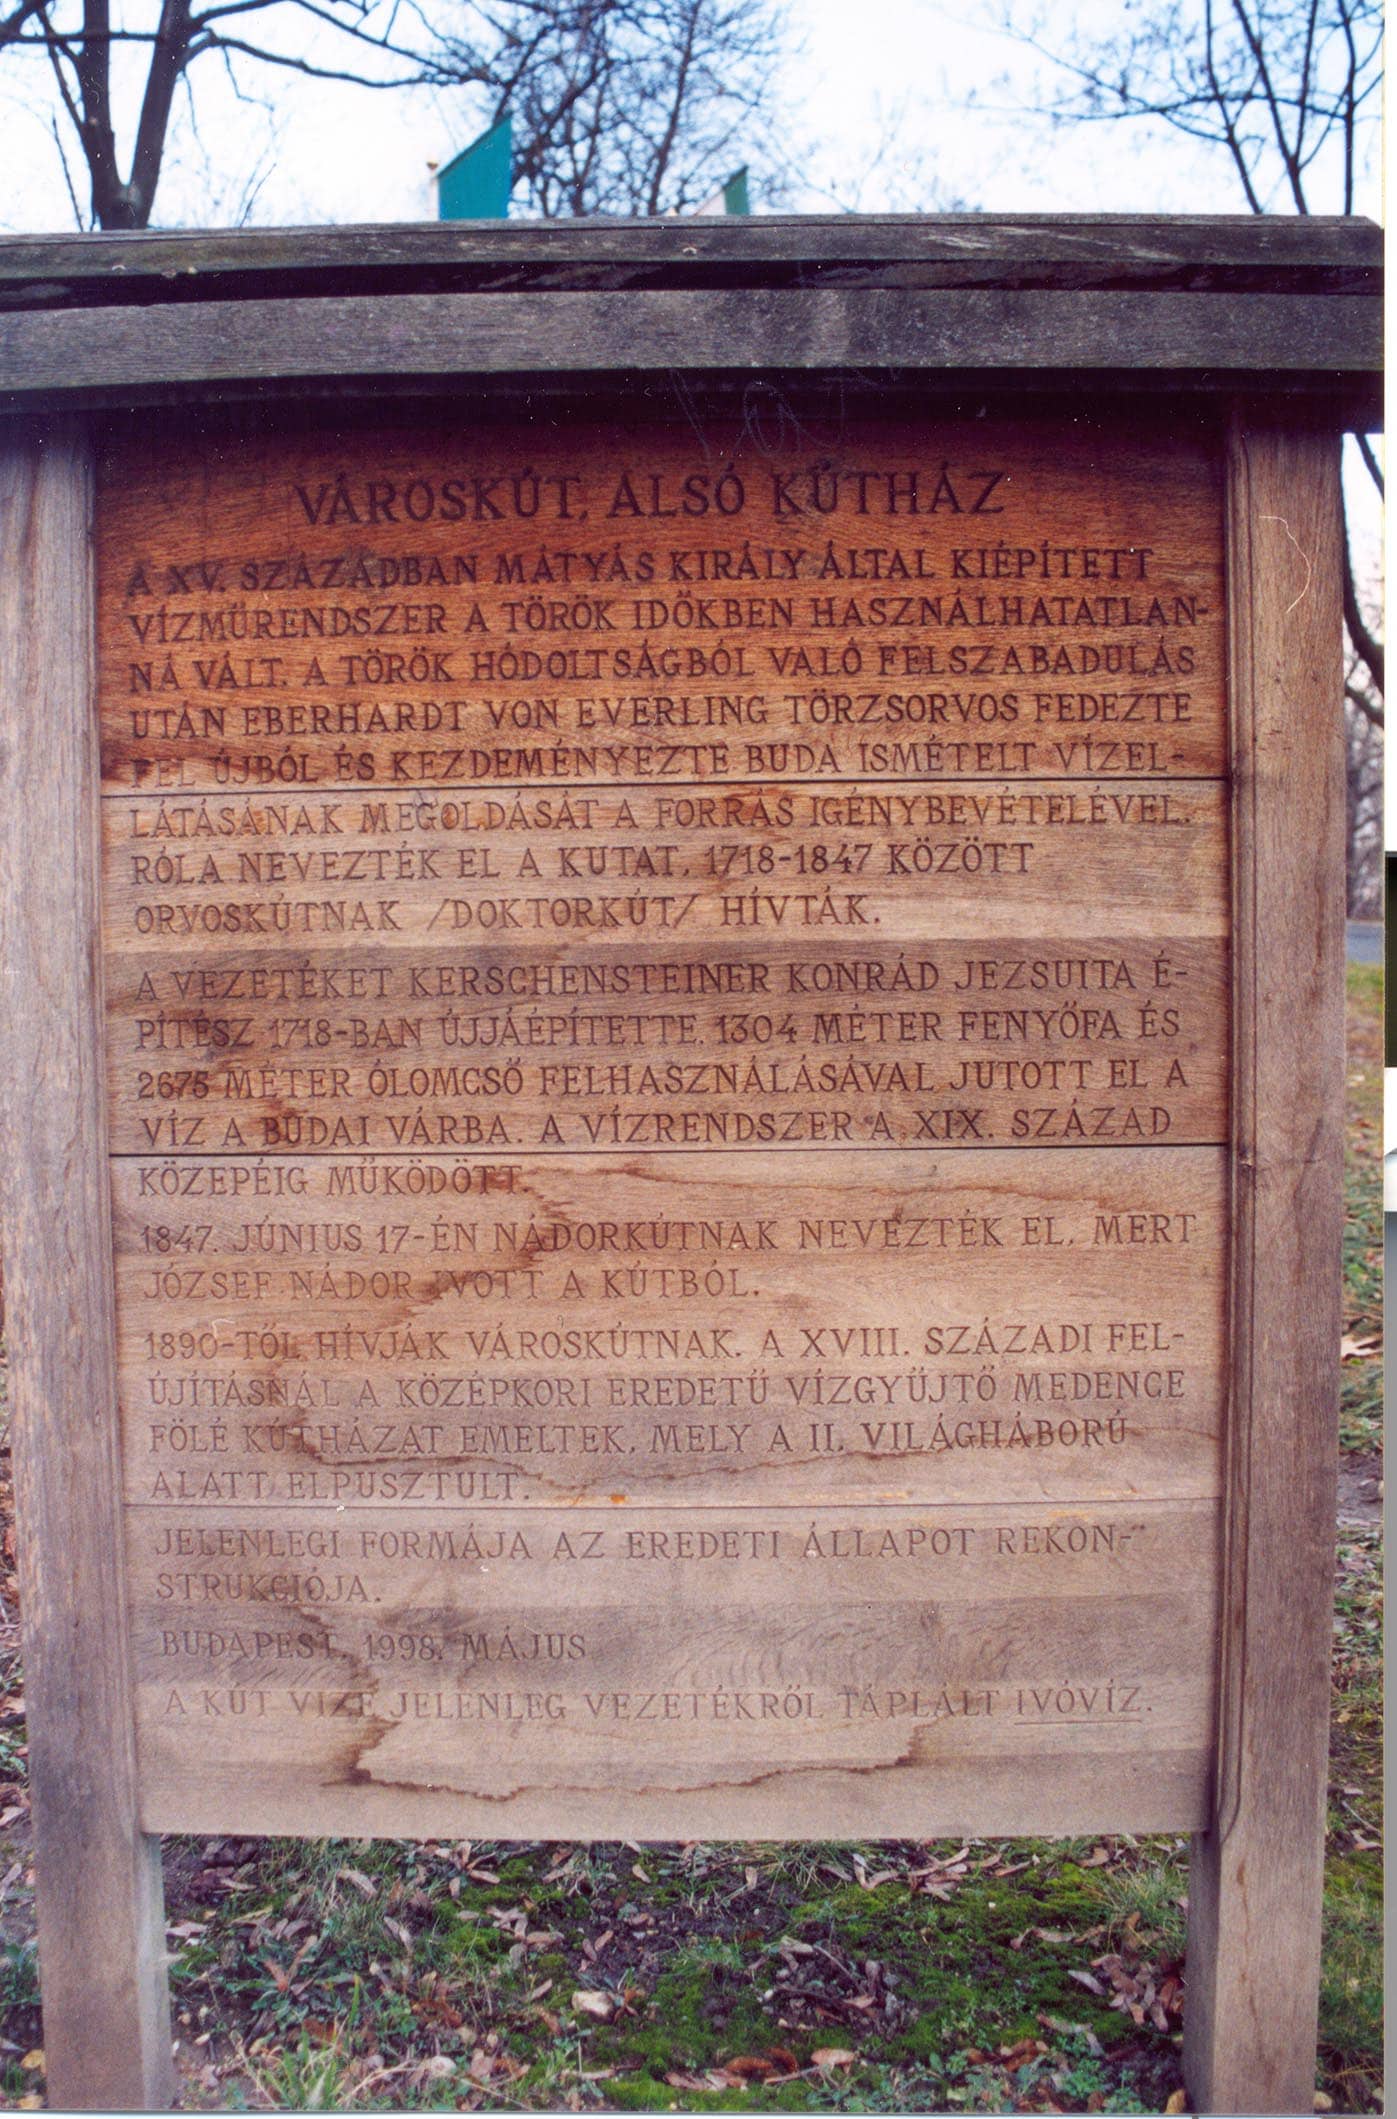 VÁROSKÚT, ALSÓ KÚTHÁZ
A XV. SZÁZADBAN MÁTYÁS KIRÁLY ÁLTAL KIÉPÍTETT
VÍZMŰRENDSZER A TÖRÖK IDŐKBEN HASZNÁLHATATLAN-
NÁ VÁLT. A TÖRÖK HÓDOLTSÁGBÓL VALÓ FELSZABADULÁS
UTÁN EBERHARDT VON EVERLING TÖRZSORVOS FEDEZTE
FEL ÚJBÓL ÉS KEZDEMÉNYEZTE BUDA ISMÉTELT VÍZEL-
LÁTÁSÁNAK MEGOLDÁSÁT A FORRÁS IGÉNYBEVÉTELÉVEL.
RÓLA NEVEZTÉK EL A KUTAT, 1718-1847 KÖZÖTT
ORVOSKÚTNAK /DOKTORKÚT/ HÍVTÁK.
A VEZETÉKET KERSCHENSTEINER KONRÁD JEZSUITA É-
PÍTÉSZ 1718-BAN ÚJJÁÉPÍTETTE. 1304 MÉTER FENYŐFA ÉS
2675 MÉTER ÓLOMCSŐ FELHASZNÁLÁSÁVAL JUTOTT EL A
VÍZ A BUDAI VÁRBA. A VÍZRENDSZER A XIX. SZÁZAD
KÖZEPÉIG MŰKÖDÖTT.
1847. JÚNIUS 17-ÉN NÁDORKÚTNAK NEVEZTÉK EL, MERT
JÓZSEF NÁDOR IVOTT A KÚTBÓL.
1890-TŐL HÍVJÁK VÁROSKÚTNAK. A XVIII. SZÁZADI FEL-
ÚJÍTÁSNÁL A KÖZÉPKORI EREDETŰ VÍZGYŰJTŐ MEDENCE
FÖLÉ KÚTHÁZAT EMELTEK, MELY A II. VILÁGHÁBORÚ
ALATT ELPUSZTULT.
JELENLEGI FORMÁJA AZ EREDETI ÁLLAPOT REKON-
STRUKCIÓJA.
BUDAPEST, 1998. MÁJUS
A KÚT VIZE JELENLEG VEZETÉKRŐL TÁPLÁLT IVÓVÍZ.